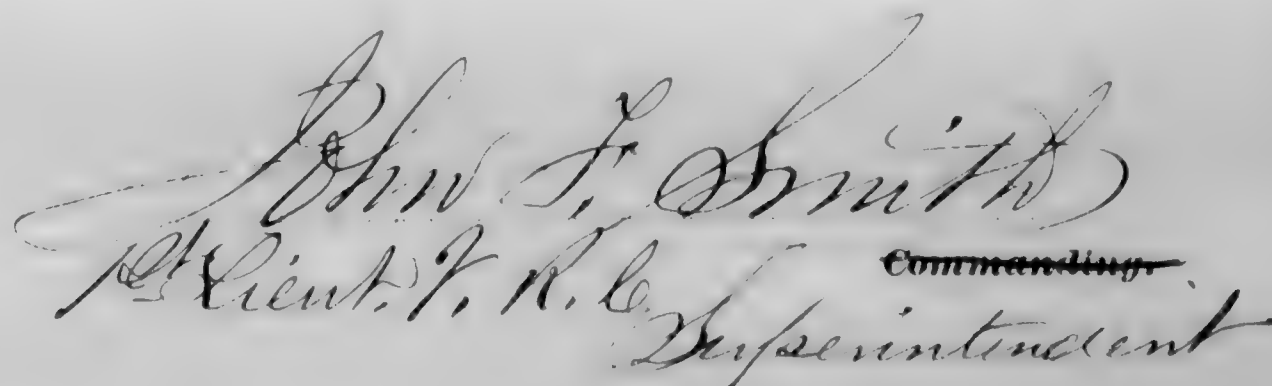 John F. Smith
1st Lieut. V. R. C.
Commanding.
Superintendent